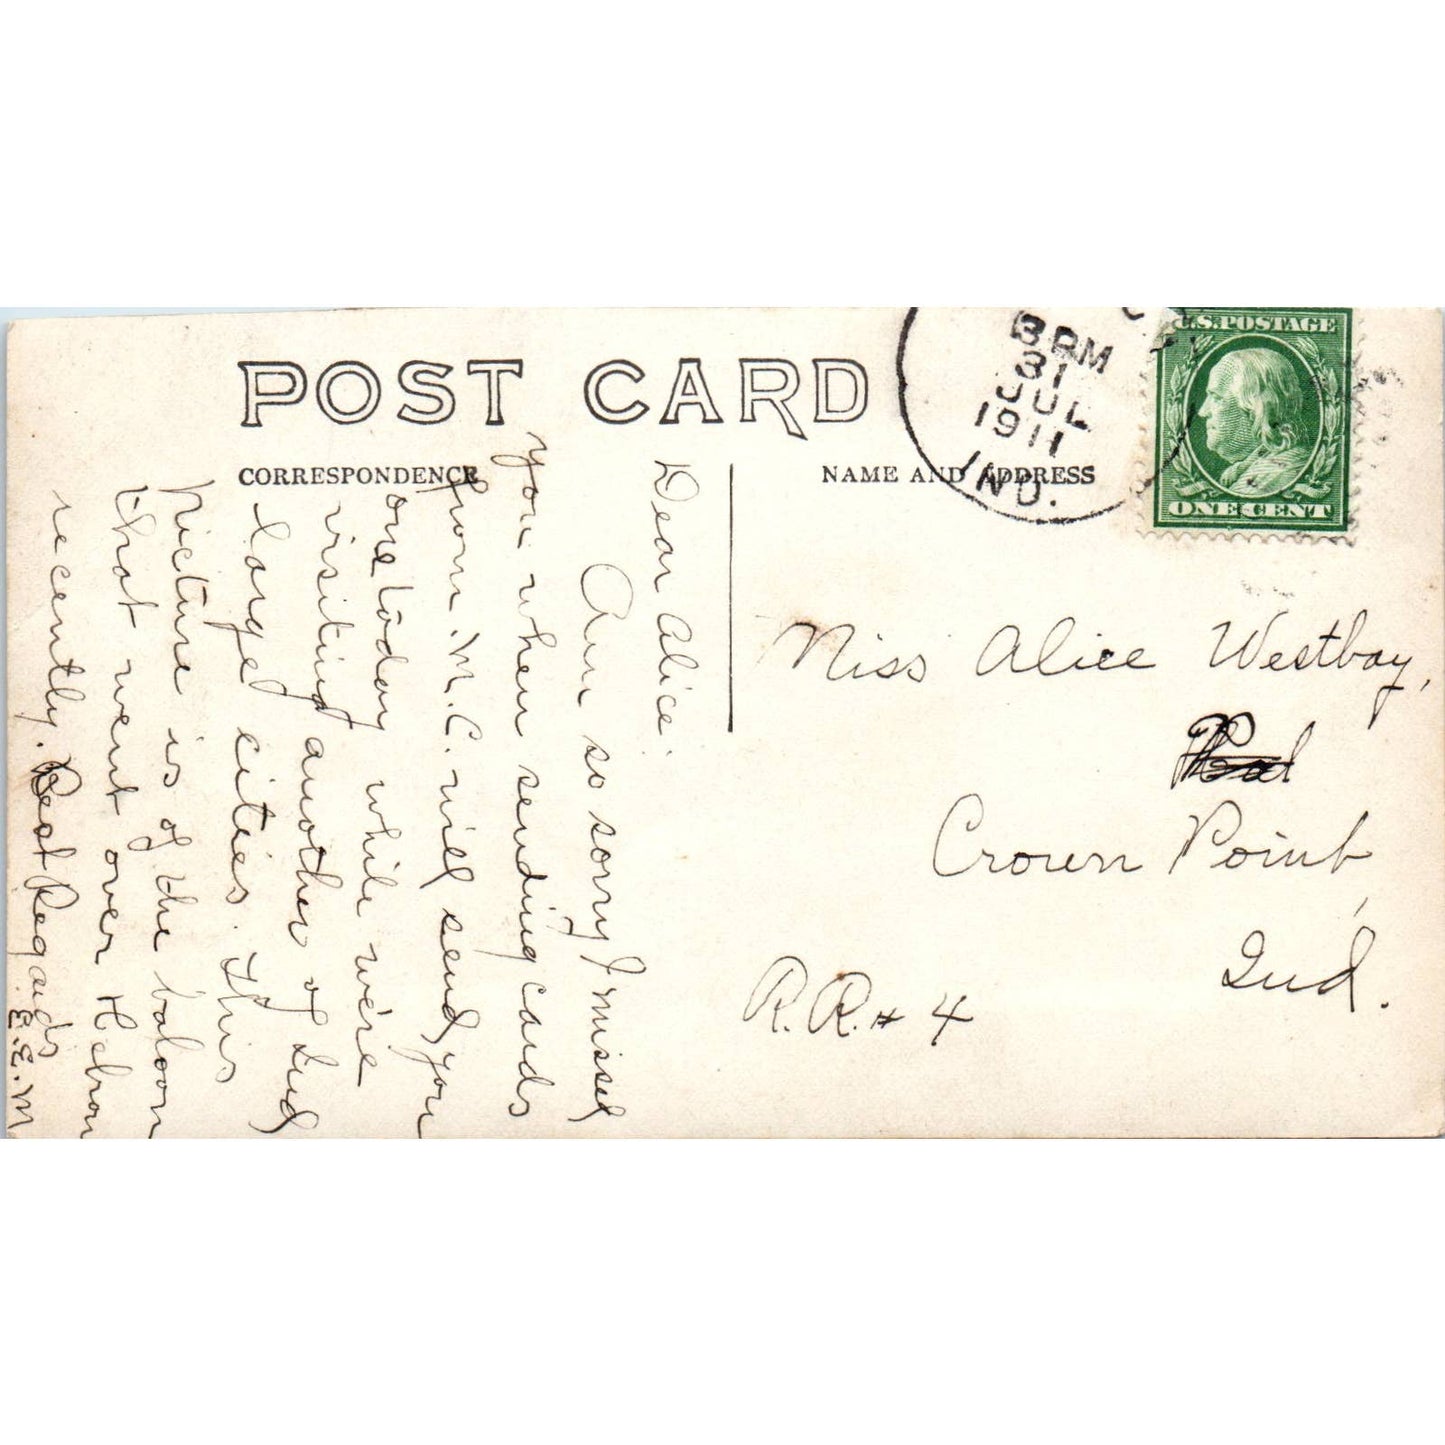 POST CARD
CORRESPONDENCE
NAME AND ADDRESS
3 PM
31
JUL
1911
IND.
U.S. POSTAGE
ONE CENT
Dear Alice:
Am so sorry I missed
you when sending cards
from M.C. will send you
one today while we're
visiting another of Ind
larged cities. This
Picture is of the baloon
that went over Hebron
recently. Best Regards
E.E.M
Miss Alice Westbay,
Crown Point,
Ind.
R.R. # 4